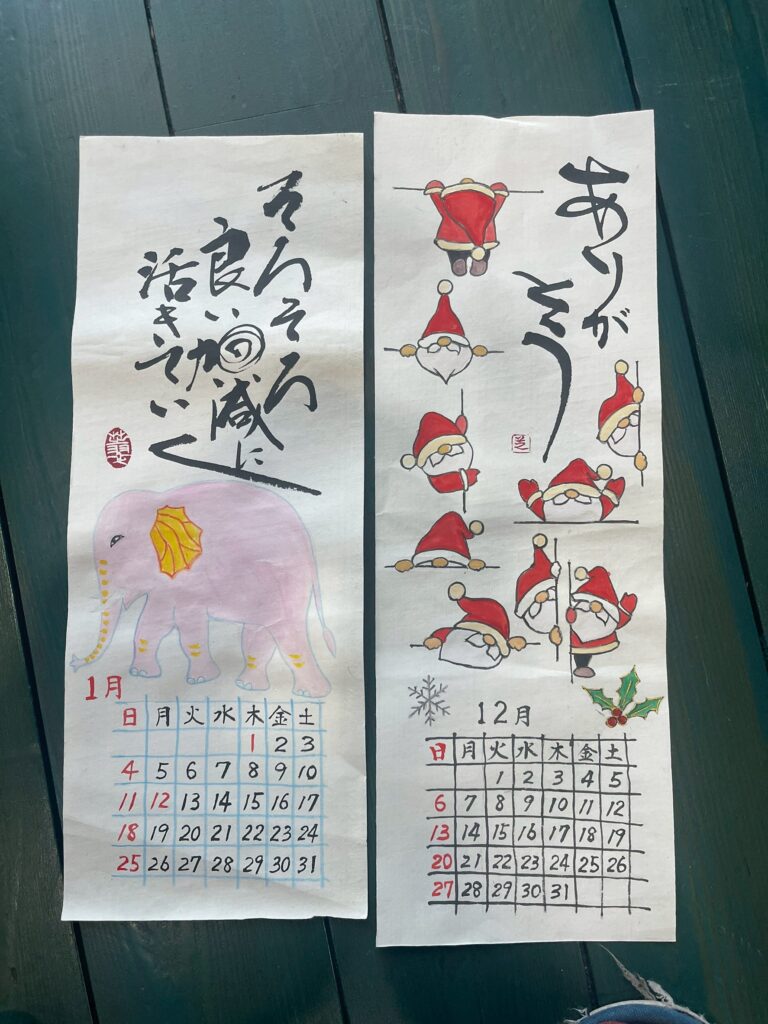 そろそろ
良い加減に
活きていく
1月
日 月 火 水 木 金 土
1 2 3
4 5 6 7 8 9 10
11 12 13 14 15 16 17
18 19 20 21 22 23 24
25 26 27 28 29 30 31
ありが
とう
12月
日 月 火 水 木 金 土
1 2 3 4 5
6 7 8 9 10 11 12
13 14 15 16 17 18 19
20 21 22 23 24 25 26
27 28 29 30 31